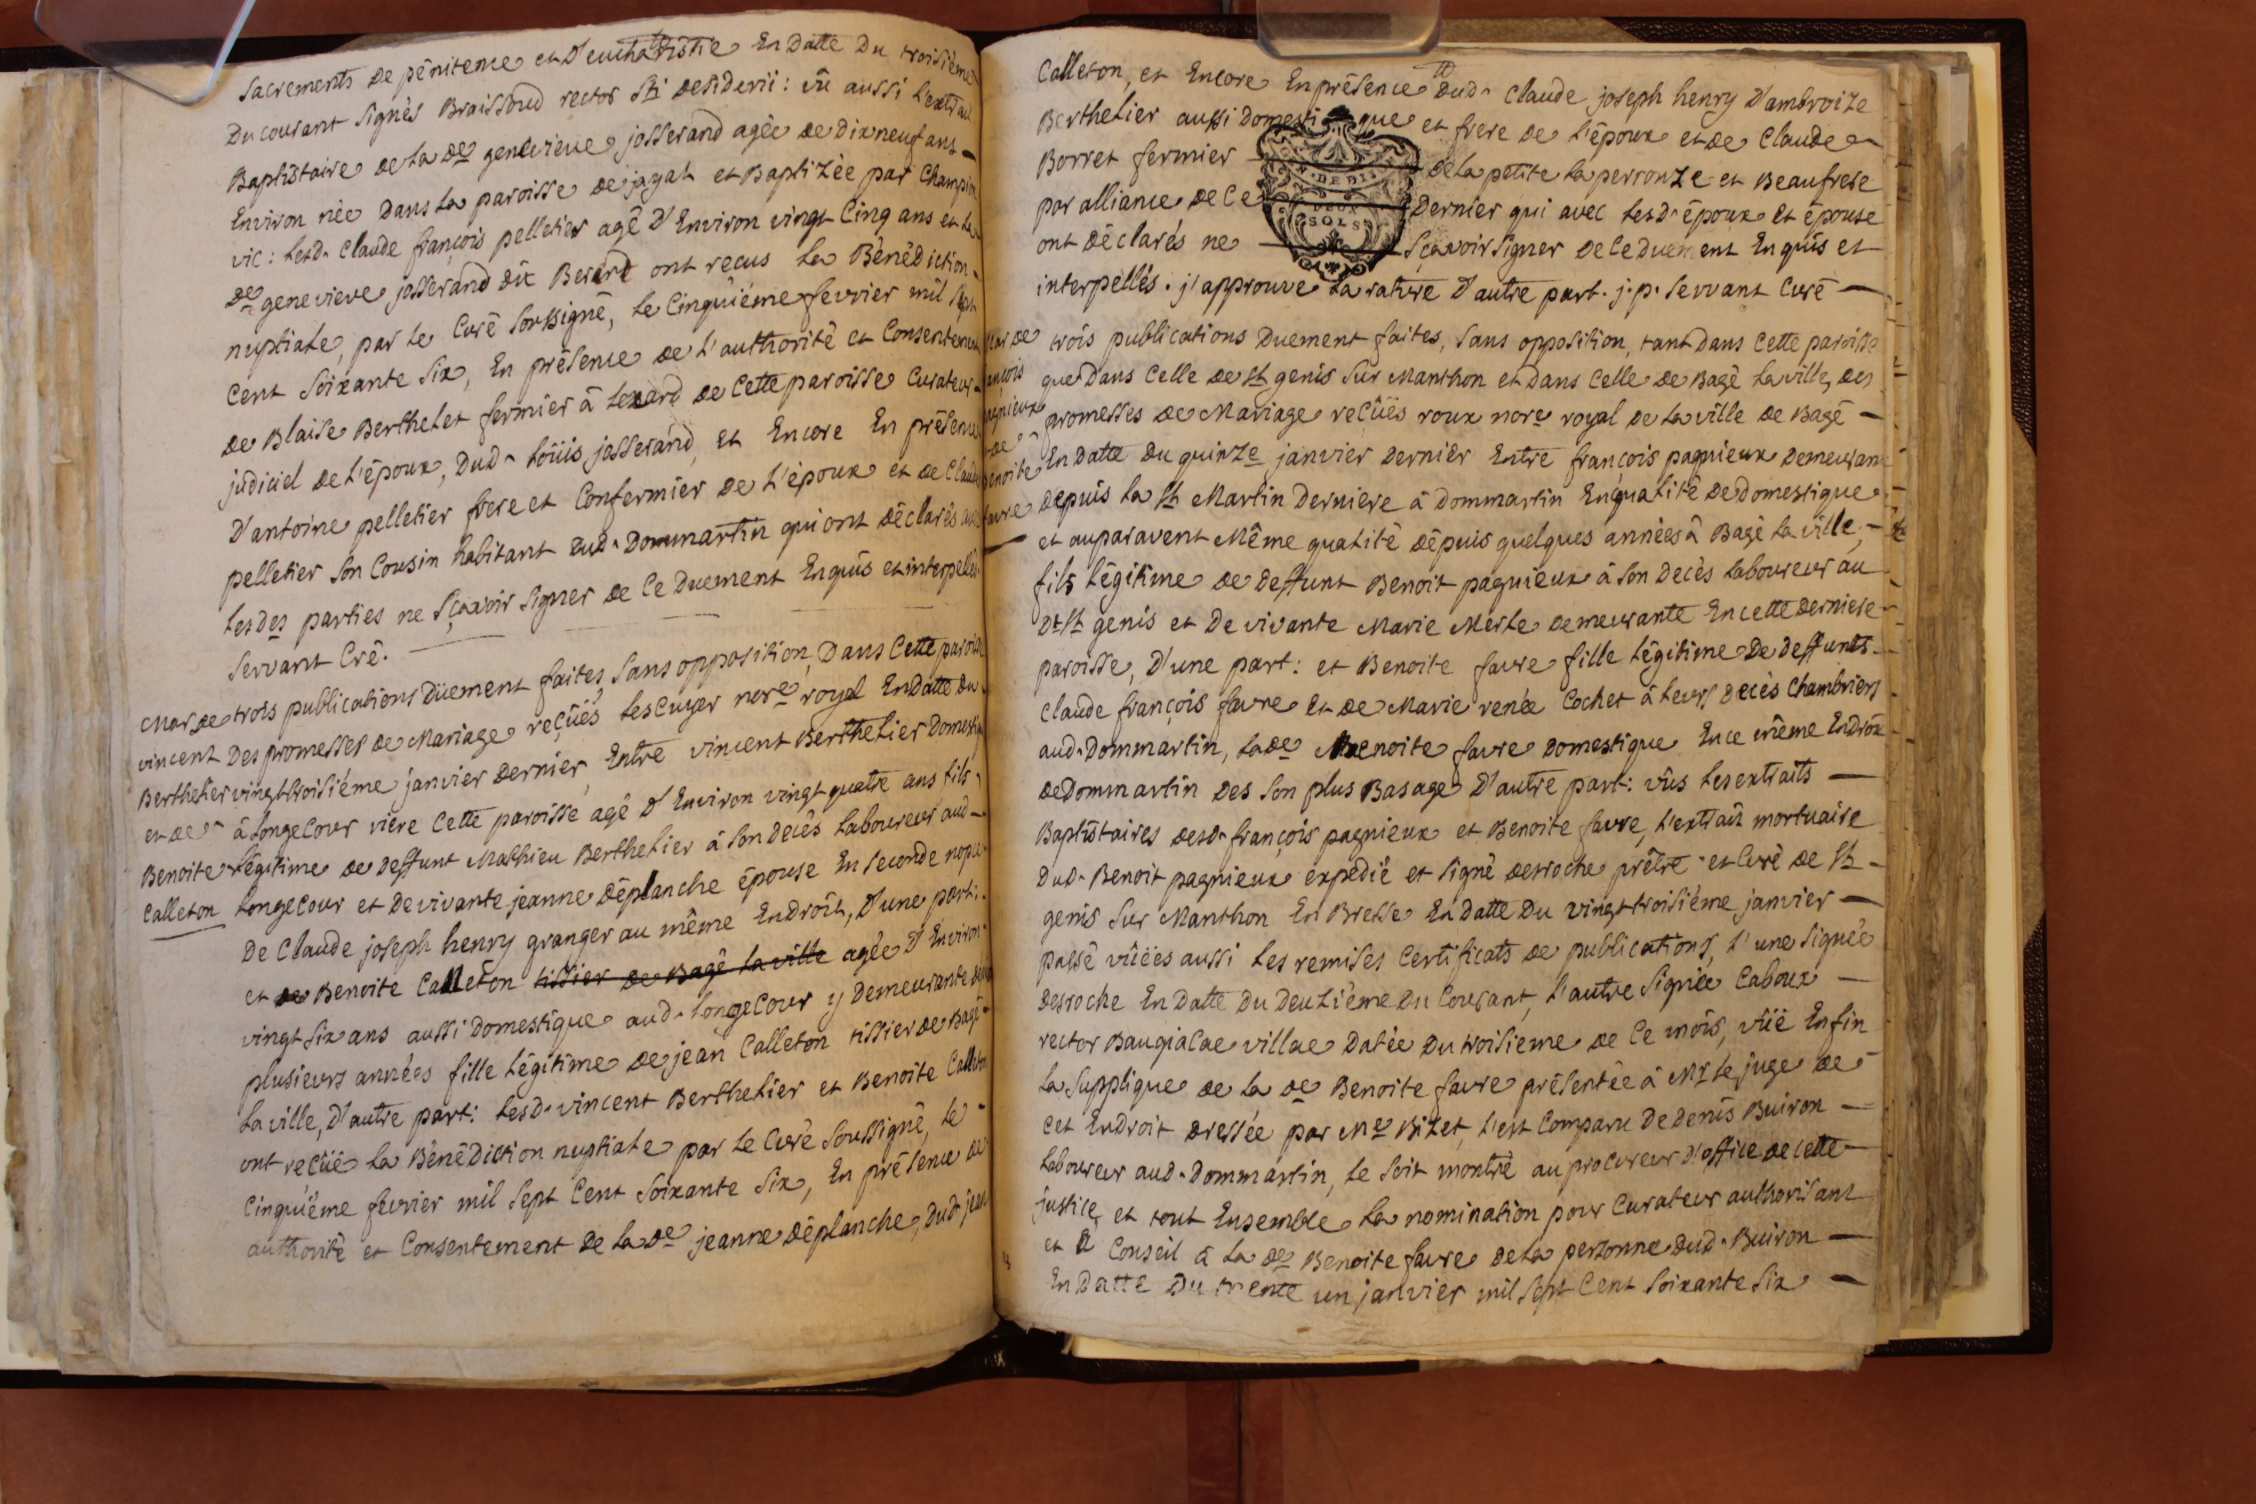 Sacrements De pénitence et D'eucharistie En Datte Du troisième
Du courant signés Braissoud rector Sti Desiderii : vû aussi L'extrait
Baptistaire de La De genevieve josserand agée de Dix neuf ans —
Environ née Dans La paroisse de jayat et Baptizée par Champin
vic : Lesd. Claude françois pelletier agé D'Environ vingt Cinq ans et La
De genevieve josserand dit Berard ont reçus La Bénédiction -
nuptiale, par Le Curé soussigné, Le Cinquiéme fevrier mil sept
Cent soixante six, En présence de L'authorité et Consentement
de Blaise Berthelet fermier â Lexard de Cette paroisse Curateur
judiciel de L'époux, Dud. Loüis josserand, et Encore En présence
D'antoine pelletier frere et Confermier de L'époux et de Claude
pelletier son Cousin habitant aud. Dommartin qui ont déclarés avec
Lesdes parties ne sçavoir signer de Ce Duement Enquis et interpellés
servant Cré.
Mar. de
vincent
Berthelier
et de
Benoite
Calleton
trois publications Düement faites, sans opposition, Dans Cette paroisse
Des promesses de Mariage reçûës Lescuyer nore royal En Datte du
vingt troisiéme janvier Dernier, Entre vincent Berthelier Domestique
â LongeCour riére Cette paroisse agé D'Environ vingt quatre ans fils
Légitime de deffunt Mathieu Berthelier â son decés Laboureur aud —
LongeCour et de vivante jeanne Déplanche épouse En seconde nopce
De Claude joseph henry granger au même Endroit, D'une part :
et de Benoite Calleton tissier de Bagé La ville agée D'Environ
vingt six ans aussi Domestique aud. LongeCour y Demeurante
plusieurs années fille Légitime de jean Calleton tissier de Bagé
La ville, D'autre part : Lesd. vincent Berthelier et Benoite Calleton
ont reçûë La Bénédiction nuptiale par Le Curé soussigné, Le -
Cinquiéme fevrier mil sept Cent soixante six, En présence de
authorité et Consentement De La De jeanne Déplanche, Dud. jean
Calleton, et Encore En présence Dud. Claude joseph henry D'ambroize
Berthelier aussi Domestique et frere de L'époux et de Claude
Borret fermier De La petite La perrouze et Beaufrere
par alliance de Ce Dernier qui avec Lesd. époux et épouse
ont déclarés ne sçavoir signer de Ce Duement Enquis et
interpellés. j'approuve La rature D'autre part. j. p. servant Curé —
DEUX
SOLS
Mar. de
françois
pagnieux
de
Benoite
favre
trois publications Duement faites, sans opposition, tant dans Cette paroisse
que Dans Celle de St genis sur Manthon et dans Celle de Bagé La ville, des
promesses de Mariage reçûës roux nore royal de La ville de Bagé —
En Datte du quinze janvier Dernier Entre françois pagnieux Demeurant
depuis La St Martin Derniere â Dommartin En qualité de domestique
et auparavent Même qualité dépuis quelques années â Bagé La ville, —
fils Légitime de deffunt Benoit pagnieux â son Decés Laboureur au
dt St genis et De vivante Marie Merle Demeurante En cette derniere
paroisse, D'une part : et Benoite favre fille Légitime De deffunts
Claude françois favre et de Marie renée Cochet â Leurs Decés Chambriers
aud. Dommartin, La de Benoite favre Domestique En ce même Endroit
de Dommartin Des son plus Bas age D'autre part : vûs Les extraits —
Baptistaires desd. françois pagnieux et Benoite favre, L'extrait mortuaire
Dud. Benoit pagnieux éxpedié et signé desroche prêtre et Curé de St —
genis sur Manthon En Bresse En Datte Du vingt troisiéme janvier —
passé vûëes aussi Les remises Certificats de publications, L'une signée
Desroche En Datte Du Deuziéme Du Courant, L'autre signée Caboux —
rector Baugiacae villae Datée Du troisieme de Ce mois, vûë Enfin
La supplique de La de Benoite favre présentée â Mr Le juge de
Cet Endroit Dressée par Me Bizet, L'est Comparu De denis Buiron —
Laboureur aud. Dommartin, Le soit montré au procureur d'office de Cette —
justice, et tout Ensemble La nomination pour Curateur authorisant
et â Conseil â La de Benoite favre de La personne dud. Buiron —
En Datte Du trente un janvier mil sept Cent soixante six —